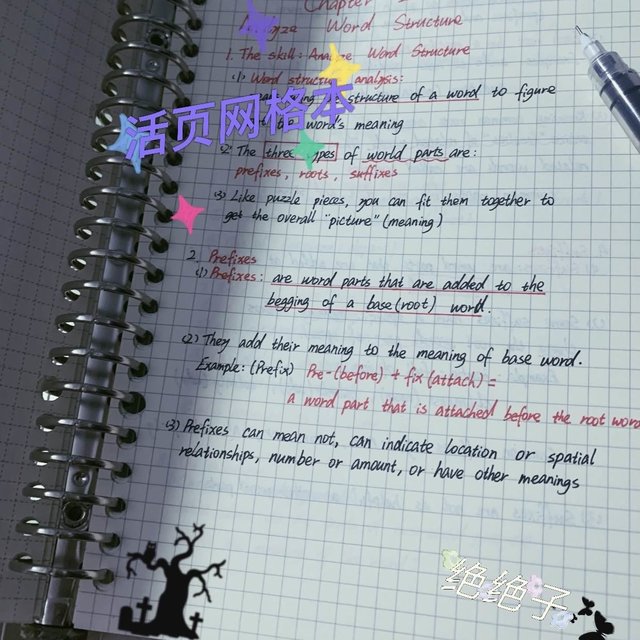 Chapter
Analyze Word Structure
1. The skill: Analyze Word Structure
(1) Word structure analysis:
structure of a word to figure
word's meaning
活页网格本
(2) The three types of world parts are:
prefixes, roots, suffixes
(3) Like puzzle pieces, you can fit them together to
get the overall "picture" (meaning)
2. Prefixes
(1) Prefixes: are word parts that are added to the
begging of a base(root) world.
(2) They add their meaning to the meaning of base word.
Example: (Prefix) Pre-(before) + fix (attach) =
a word part that is attached before the root word
(3) Prefixes can mean not, can indicate location or spatial
relationships, number or amount, or have other meanings
绝绝子